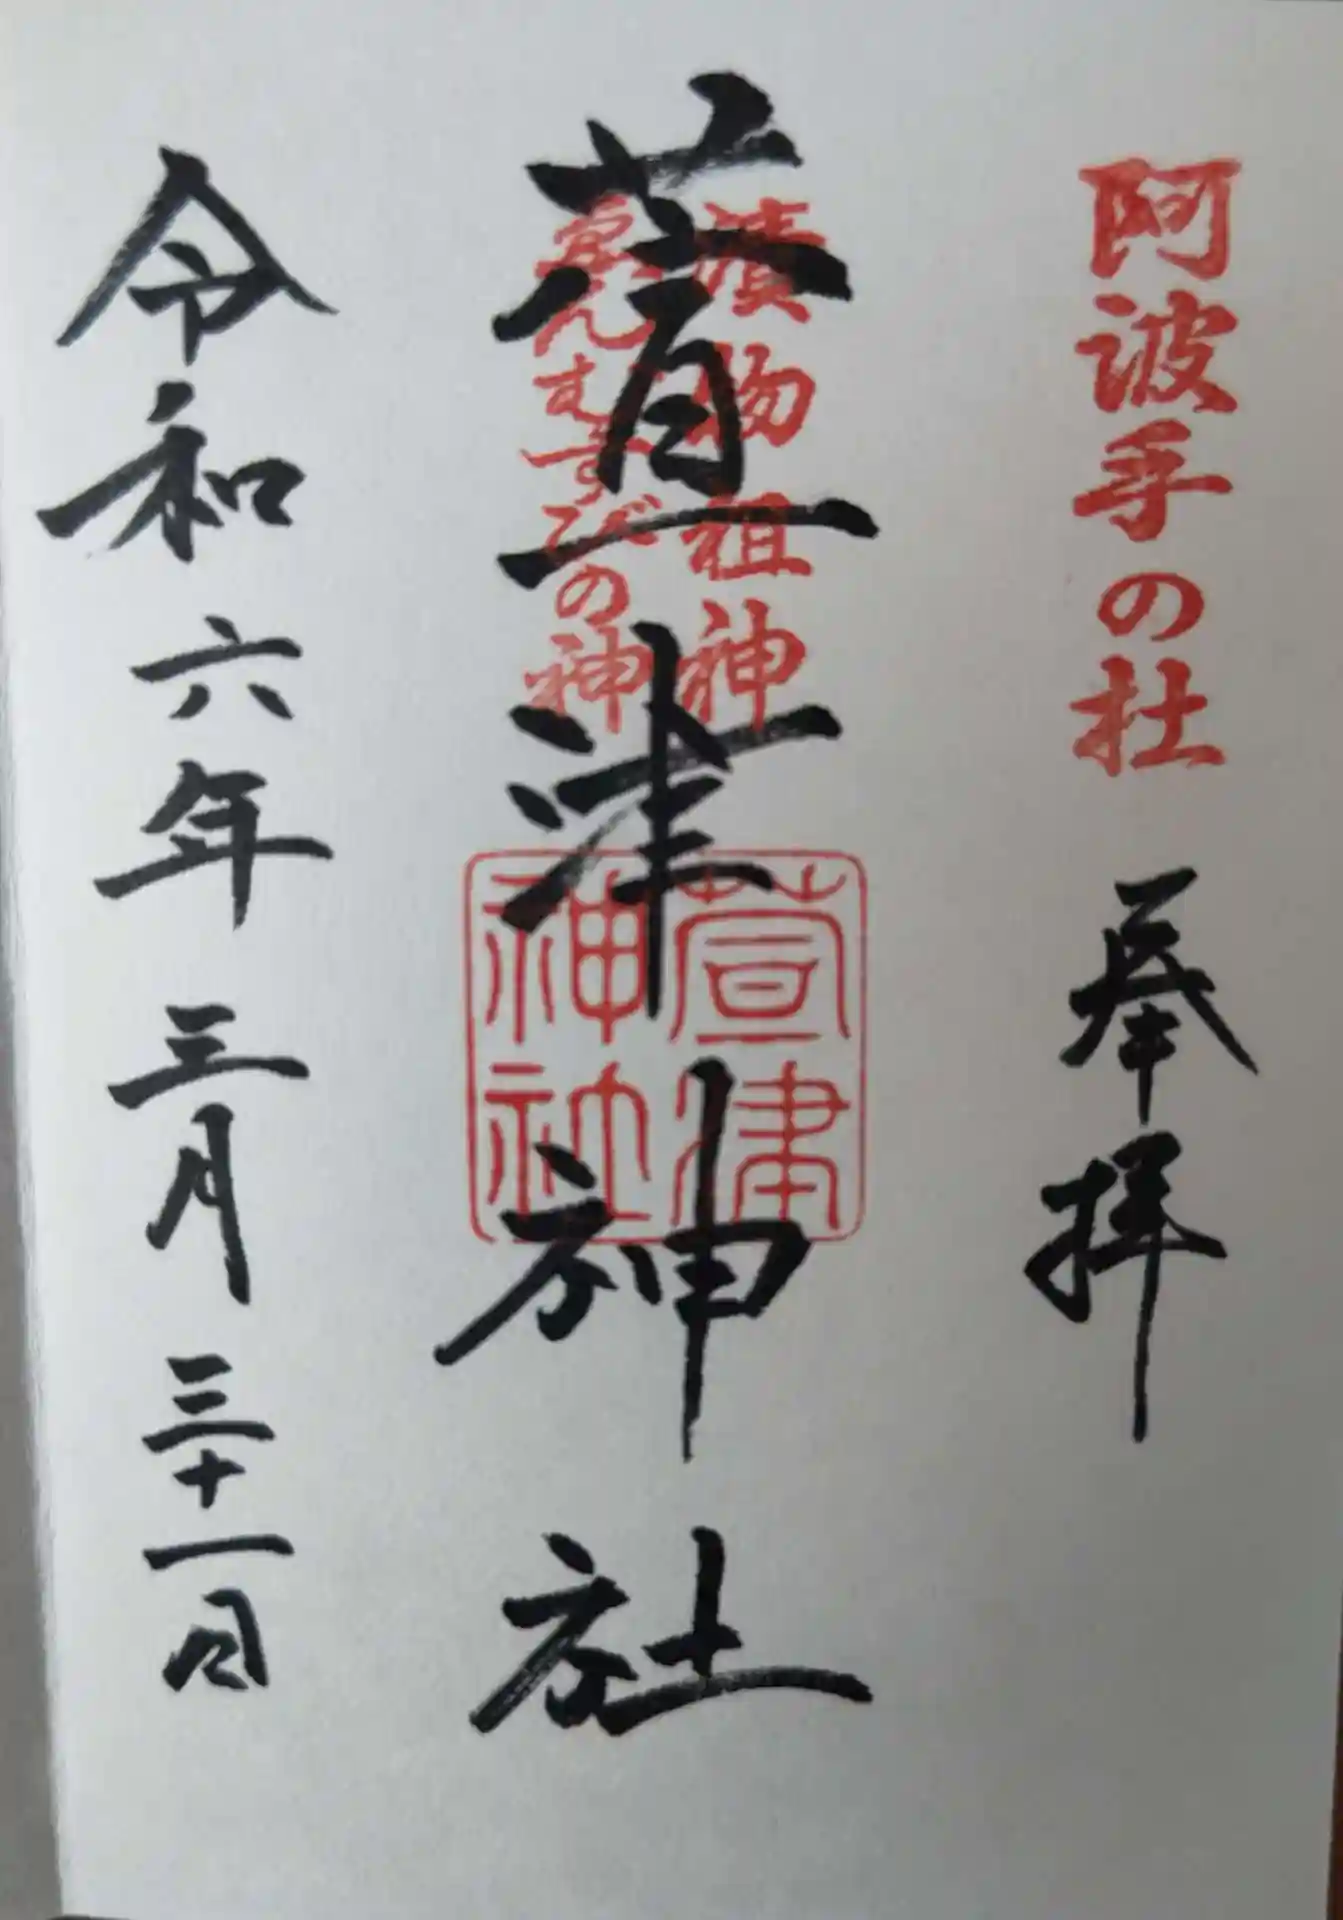 阿波手の杜
奉拝
漬物祖神
えんむすびの神
萱津神社
萱津
神社
令和六年三月三十一日